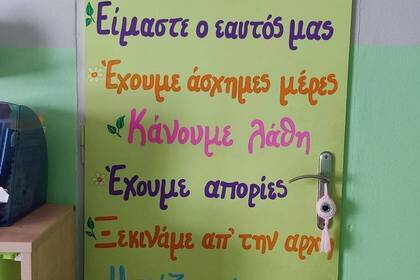 Είμαστε ο εαυτός μας
Έχουμε άσχημες μέρες
Κάνουμε λάθη
Έχουμε απορίες
Ξεκινάμε απ' την αρχή